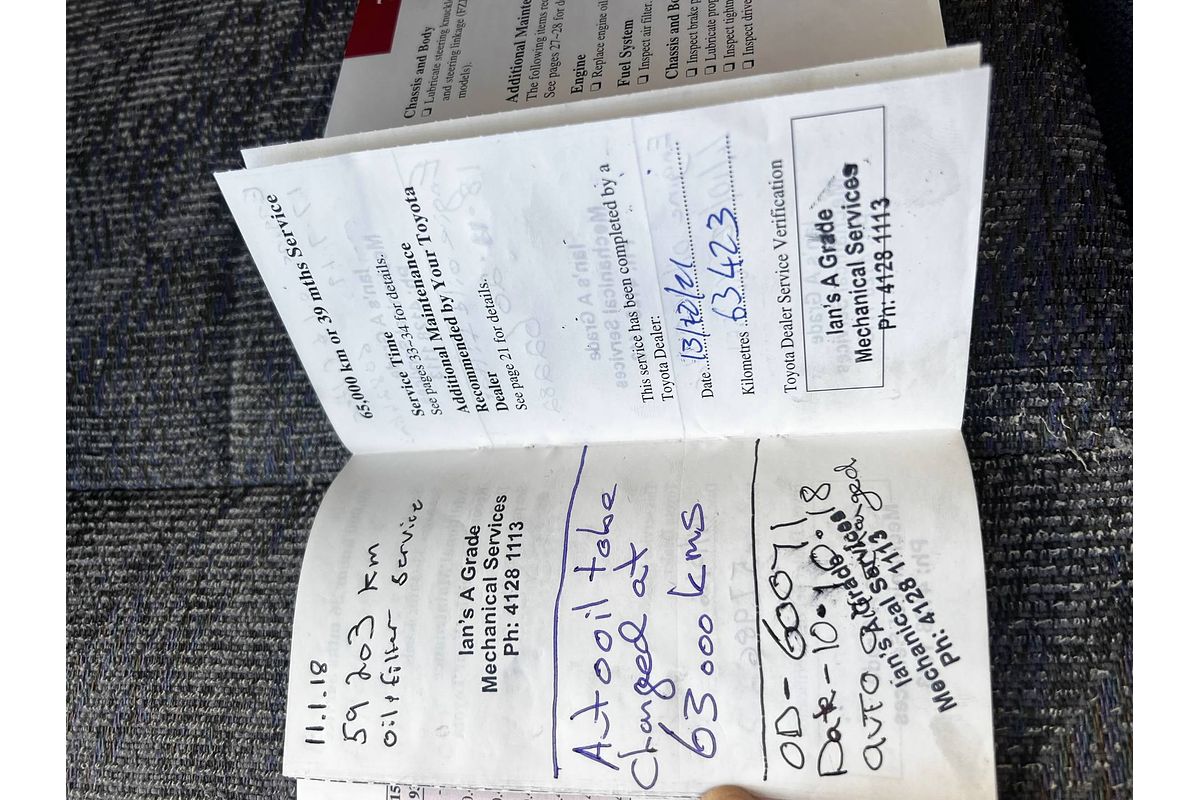 11.1.18
59203 KM
oil + filter service
Ian's A Grade
Mechanical Services
Ph: 4128 1113
Auto oil to be
Changed at
63000 kms
OD - 60071
Date - 10.10.18
auto oil changed
Ian's A Grade
Mechanical Services
Ph: 4128 1113
65,000 km or 39 mths Service
Service Time
See pages 33–34 for details.
Additional Maintenance
Recommended by Your Toyota
Dealer
See page 21 for details.
This service has been completed by a
Toyota Dealer:
Date 13/12/21
Kilometres 63423
Toyota Dealer Service Verification
Ian's A Grade
Mechanical Services
Ph: 4128 1113
Chassis and Body
❏ Lubricate steering
and steering linkage
models).
Additional
The following items
See pages 27–28 for
Engine
❏ Replace engine oil
Fuel System
❏ Inspect air filter.
Chassis and
❏ Inspect brake
❏ Lubricate
❏ Inspect
❏ Inspect drive